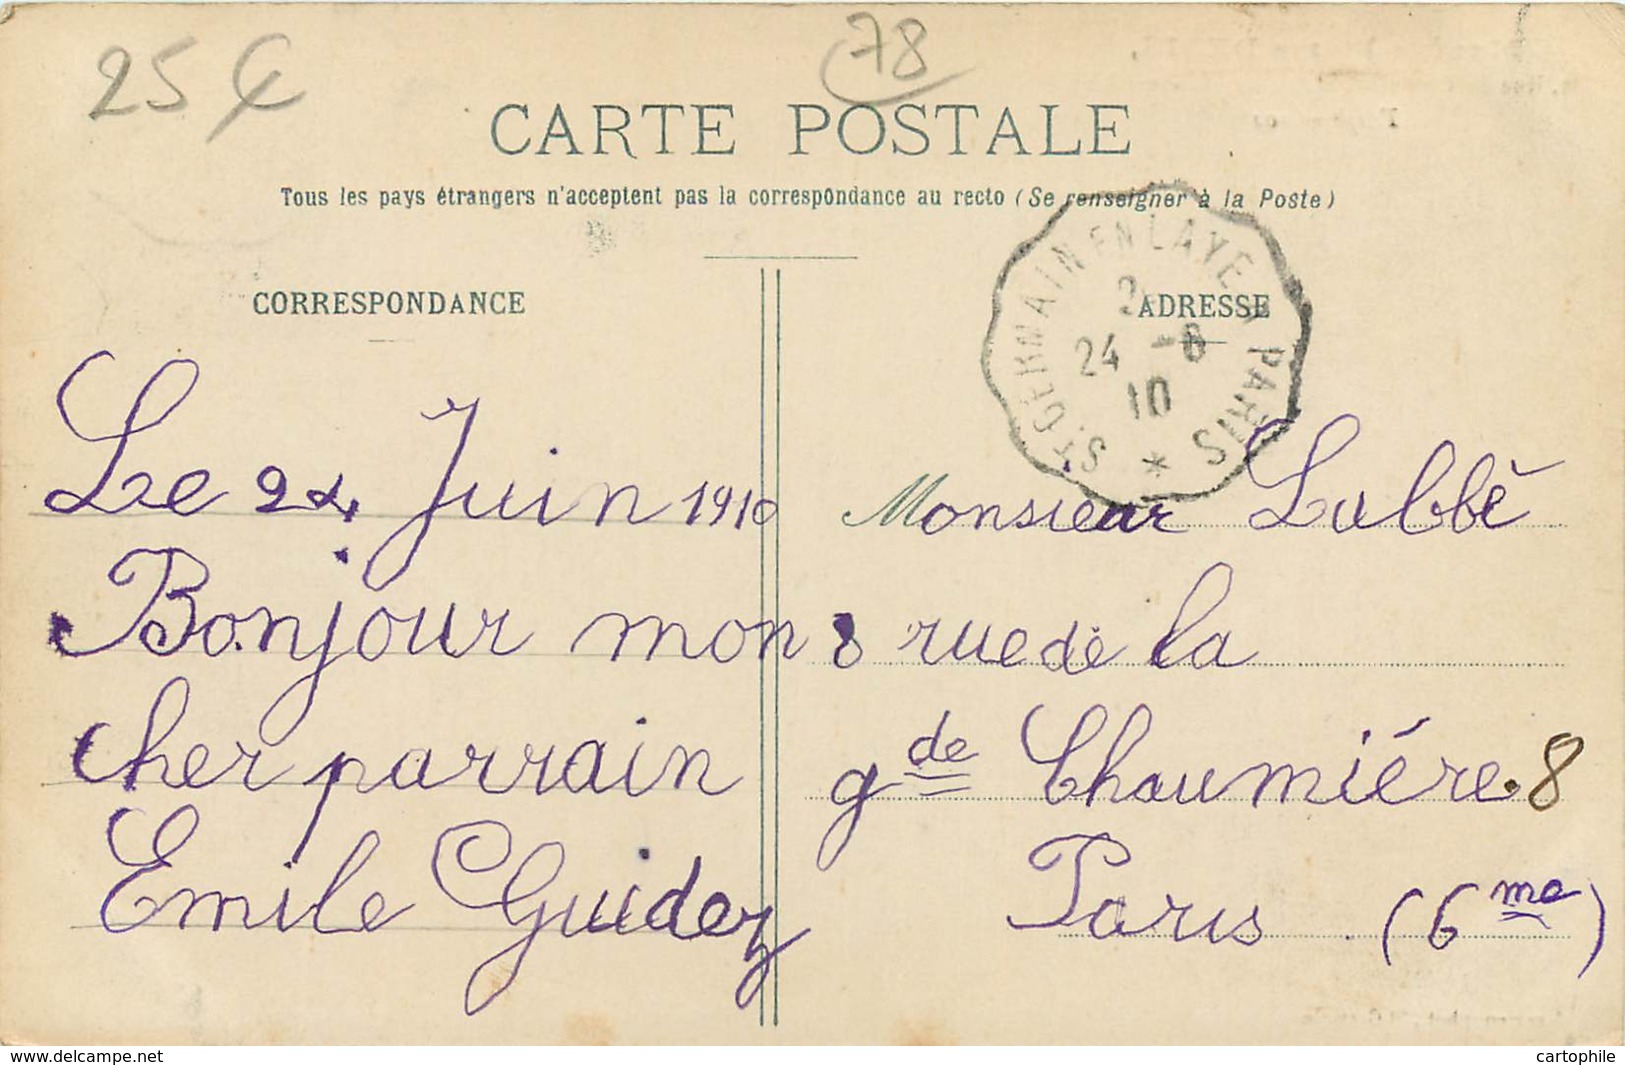 25 €
78
CARTE POSTALE
Tous les pays étrangers n'acceptent pas la correspondance au recto (Se renseigner à la Poste)
CORRESPONDANCE
ADRESSE
ST GERMAIN EN LAYE A PARIS
2
24 -6
10
*
Le 24 Juin 1910
Bonjour mon
cher parrain
Emile Guidez
Monsieur Labbé
8 rue de la
gde Chaumière.8
Paris (6me)
www.delcampe.net
cartophile